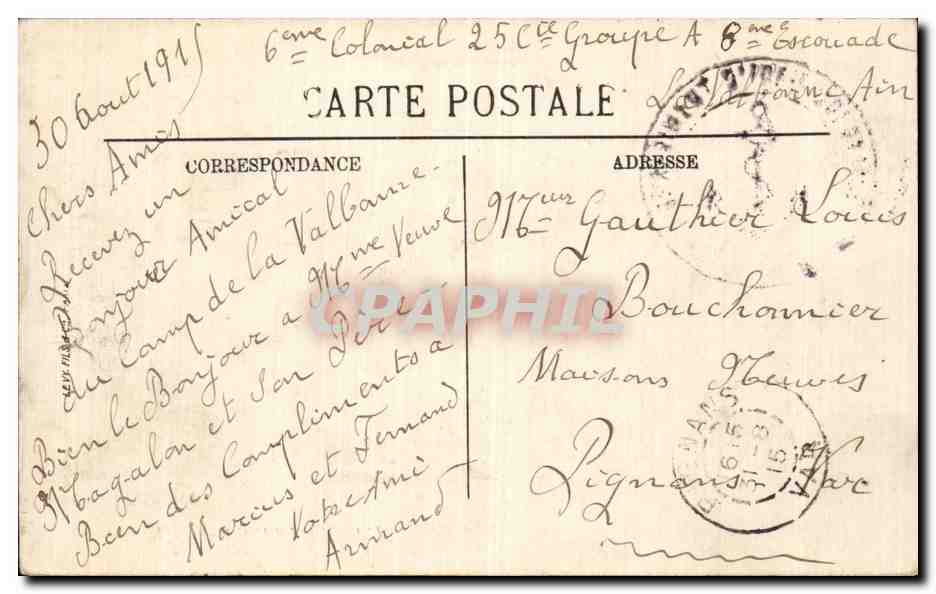 6eme Colonial 25 Cie Groupe A 8eme Escouade
La Valbonne Ain
30 Aout 1915
CARTE POSTALE
CORRESPONDANCE
ADRESSE
Chers Amis
Recevez un
Bonjour Amical
du Camp de la Valbonne.
Bien le Bonjour a Mme Veuve
Magalon et Son Père
Bien des Compliments a
Marius et Fernand
Votre Ami
Armand
Mr Gauthier Louis
Bouchonnier
Maisons
Pignans Var
PIGNANS
16 15
31 -8
15
VAR
CPAPHIL